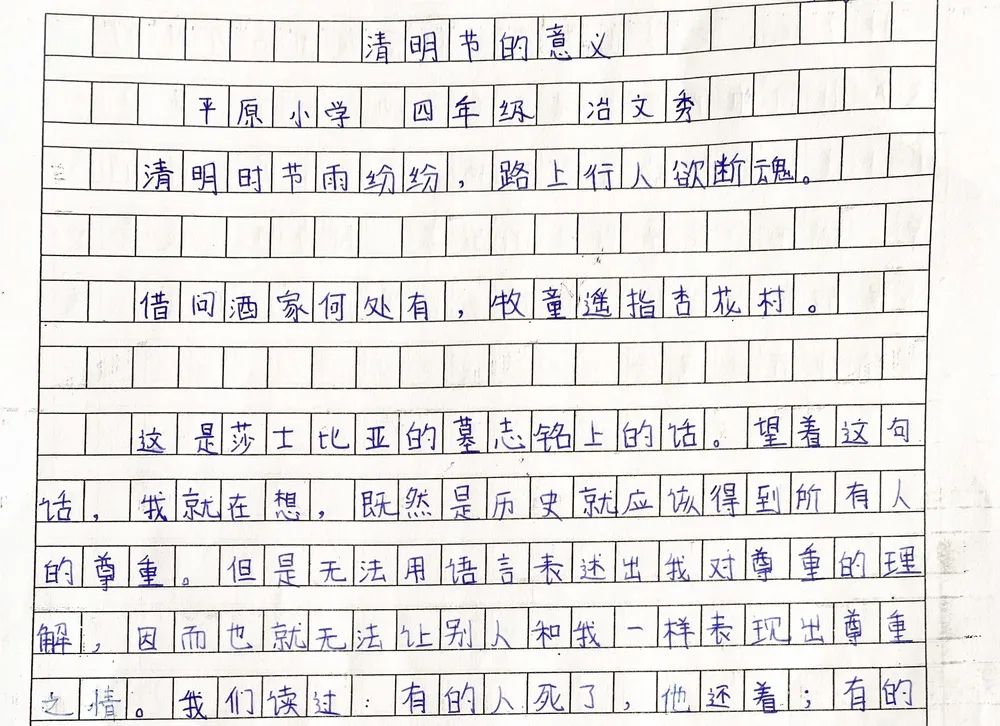 清明节的意义
平原小学 四年级 冶文秀
清明时节雨纷纷，路上行人欲断魂。
借问酒家何处有，牧童遥指杏花村。
这是莎士比亚的墓志铭上的话。望着这句
话，我就在想，既然是历史就应该得到所有人
的尊重。但是无法用语言表述出我对尊重的理
解，因而也就无法让别人和我一样表现出尊重
之情。我们读过：有的人死了，他还着；有的